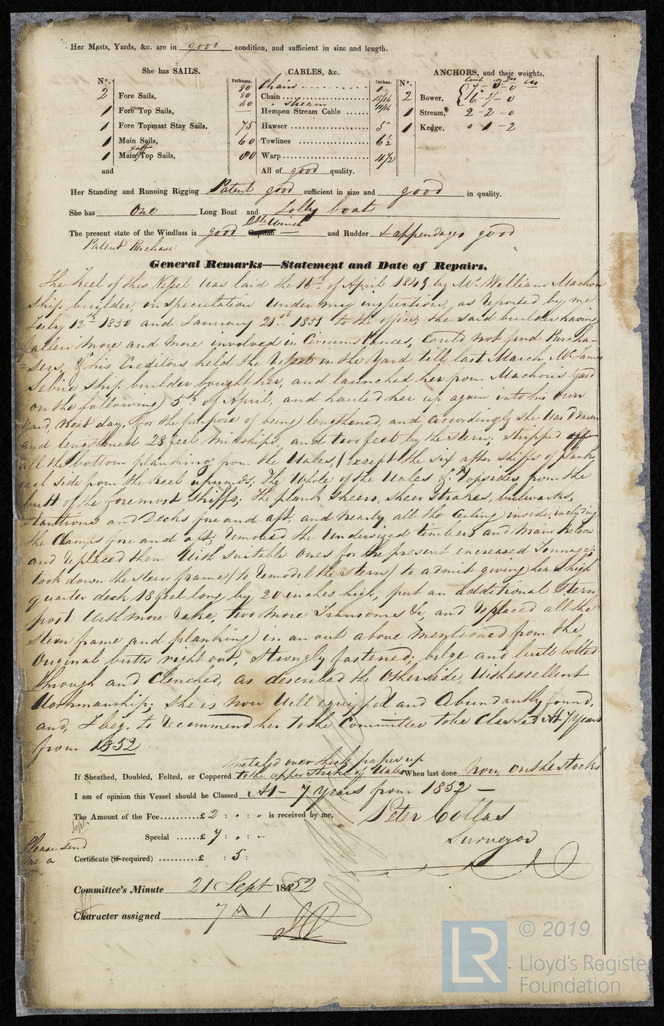 Her Masts, Yards, &c. are in good condition, and sufficient in size and length.
She has SAILS.
CABLES, &c.
ANCHORS, and their weights.
No.
Fathoms.
Inches.
No.
2 Fore Sails,
80 Chain
2 Bower,
1 Fore Top Sails,
Chain
1 Fore Topmast Stay Sails,
Hempen Stream Cable
1 Stream, 2-2-0
75 Hawser 5
1 Kedge, 0 1-2
1 Main Sails,
60 Towlines 6½
1 Main Gaff Top Sails,
80 Warp 4½
and
All of good quality.
Her Standing and Running Rigging Patent good sufficient in size and good in quality.
She has One Long Boat and Jolly boat
The present state of the Windlass is good and Rudder & appendages good
Patent Purchase
General Remarks—Statement and Date of Repairs.
The Keel of this Vessel was laid the 16th of April 1849 by Mr. William Machon
Ship builder, on Speculation under my inspection, as reported by me
July 12th 1850 and January 21st 1851 to the office, the said builder having
fallen more and more involved in Circumstances, could not find Purcha-
sers, & his Creditors held the Vessel in the Yard till last March, Mr. James
Sebire Ship builder bought her, and launched her from Machon's Yard
on the following 5th of April, and hauled her up again into his own
Yard, next day, for the purpose of being lengthened, and accordingly she was
and lengthened 28 feet Midships, and two feet by the stern, stripped off
all the bottom planking from the Wales, (except the six after shifts of planks
each side from the Keel upwards, The Whole of the Wales & Topsides from the
butt of the foremost Shifts; the plank Sheers, Sheer Strakes, bulwarks,
Stantions and Decks fore and aft, and nearly all the Ceiling inside, including
the Clamps fore and aft, removed the undersized timbers and Main Kelson
and replaced them with suitable ones for the present increased Tonnage;
took down the stern frame (to remodel the stern) to admit giving her a high
quarter deck 18 feet long by 20 inches high, put an additional Stern
post with more rake, two more Transoms &c, and replaced all the
stern frame and planking in an out above mentioned from the
Original butts right out, Strongly fastened: bilge and butts bolted
through and Clenched, as described the Otherside, with excellent
Workmanship; She is now Well equipped and Abundantly found,
and, I beg to recommend her to the Committee to be Classed A1 7 Years
from 1852.
metal'd over thick paper up
If Sheathed, Doubled, Felted, or Coppered to the upper strake of Wales When last done now on the stocks
I am of opinion this Vessel should be Classed A1- 7 Years from 1852 -
The Amount of the Fee £2 : „ : „ is received by me,
Peter Collas
Surveyor
Special £
Please send
me a
Certificate (if required) £ : 5 :
Committee's Minute 21 Sept 1852
Character assigned 7 A 1
LR
© 2019
Lloyd's Register
Foundation